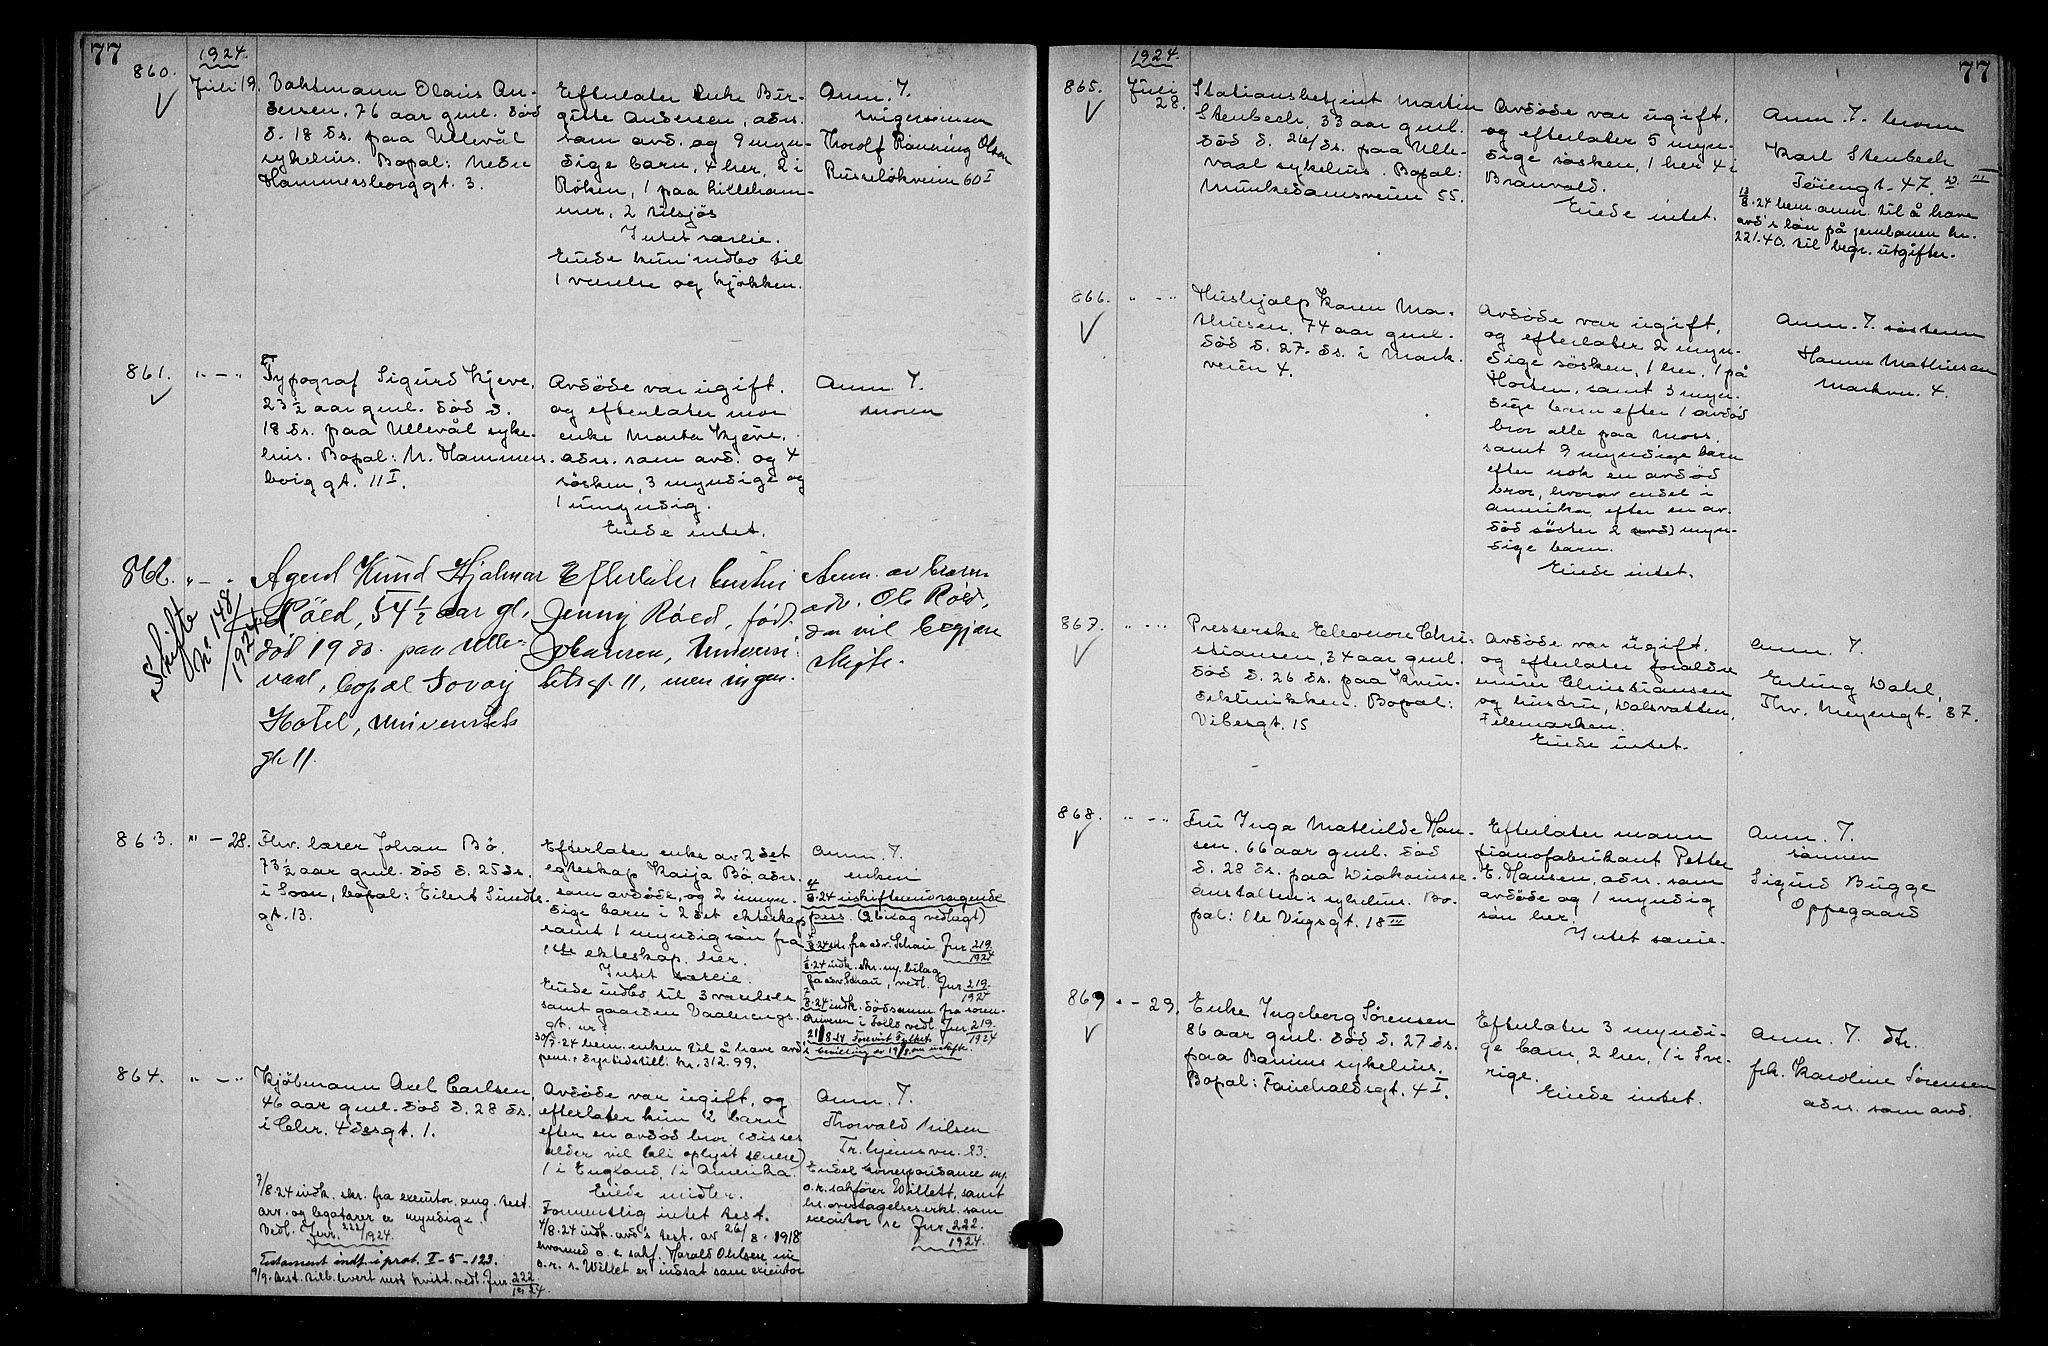 77
1924.
860.
Juli 19.
Vaktmann Olaus An-
dersen, 76 aar gml. død
d. 18 ds. paa Ullevål
sykehus. Bopæl: Nedre
Hammersborggt. 3.
Efterlater enke Bir-
gitte Andersen, adrs.
som avd. og 9 myn-
dige barn, 4 her, 2 i
Røken, 1 paa Lilleham-
mer, 2 Nilsjøs
Intet særeie.
Eiede kun indbo til
1 værelse og kjøkken.
Anm. f.
svigersønnen
Thorolf Rønning Olsen
Ruseløkveien 60 I
861.
" — "
Typograf Sigurd Kjeve,
23 1/2 aar gml. død d.
18 ds. paa Ullevål syke-
hus. Bopæl: N. Hammers-
borg gt. 11 I.
Avdøde var ugift.
og efterlater mor
enke Marta Kjeve,
adrs. som avd. og 4
søsken, 3 myndige og
1 umyndig.
Eiede intet.
Anm. f.
moren
862.
" — "
Skifte
No 148
/1924
Agent Knud Hjalmar
Røed, 54 1/2 aar gl.,
død 19 ds. paa Ulle-
vaal, bopæl Savoy
Hotel, Universitets
gt. 11.
Efterlater hustru
Jenny Røed, født
Johansen, Universi-
tetsgt. 11, men ingen
Anm. av broren
adv. Ole Røed,
der vil begjære
skifte.
863.
" — 28.
Fhv. lærer Johan Bø.
73 1/2 aar gml. død d. 25 ds.
i Soon, bopæl: Eilert Sundts
gt. 13.
Efterlater enke av 2det
egteskap Kaija Bø, adrs.
som avdøde, og 2 umyn-
dige barn i 2det ekteskap
samt 1 myndig søn fra
1ste ekteskap, her.
Intet særeie.
Eiede indbo til 3 værelser
samt gaarden Vaalerengs-
gt. nr.
30/7.24 bem. enken til å have avd's
pens. + dyrtidstill. kr. 312.99.
Anm. f.
enken
8.24 uskifteandragende
pens. (2 bilag vedlagt)
fra adv. Schau Jur 219/1924
8.24 indk. skr. m/ bilag
fra adv. Schau, vedl. Jur 219/1924
8.24 indk. dødsanm. fra soren-
skriveren i Follo vedl. Jur 219/1924
21/8.24 Forevist Fylkets
bevilling av 19/8 om uskifte.
864.
" — "
Kjøbmann Axel Carlsen,
46 aar gml. død d. 28 ds.
i Chr. 4desgt. 1.
7/8.24 indk. skr. fra executor ang. test.
arv. og legatarer er myndige.
Vedl. Jur. 222/1924.
Testament indf. i prot. I-5-123.
9/9. test. tilb. levert mot kvitt. vedl. Jur 222/1924.
Avdøde var ugift, og
efterlater kun 2 barn
efter en avdød bror (disses
alder vil bli oplyst senere)
1 i England, 1 i Amerika.
Eiede midler.
Formentlig intet test.
4/8.24 indk. avd's test. av 26/8.1918
hvormed o. r. sakf. Harald Ohlsen nu
o. r. s. Willet er indsat som executor
Anm. f.
Thorvald Nilsen
Tr.hjemsvn. 23.
Endel korrespondance m/
o.r.sakfører Willett, samt
hs. overtagelseserkl. som
executor se Jur. 222/1924.
77
1924.
865.
Juli
28.
Stationsbetjent Martin
Stenbech, 33 aar gml.
død d. 26/ds. paa Ulle-
vaal sykehus. Bopæl:
Munkedamsveien 55.
Avdøde var ugift,
og efterlater 5 myn-
dige søsken, 1 her 4 i
Branvald.
Eiede intet.
Anm. f. broren
Karl Stenbech
Tøiengt. 47. III
13/8.24 bem. anm. til å have
avd's løn på jernbanen kr.
221.40. til begr. utgifter.
866.
" — "
Hushjelp Karen Ma-
thiesen, 74 aar gml.
død d. 27. ds. i Mark-
veien 4.
Avdøde var ugift,
og efterlater 2 myn-
dige søsken, 1 her, 1 på
Horten, samt 3 myn-
dige barn efter 1 avdød
bror alle paa Moss,
samt 9 myndige barn
efter nok en avdød
bror, hvorav endel i
Amerika, efter en av-
død søster 2 myn-
dige barn.
Eiede intet.
Anm. f. søsteren
Hanna Mathiesen
Markvn. 4.
867.
" — "
Presserske Eleonore Chri-
stiansen, 34 aar gml.
død d. 26 ds. paa Kvin-
deklinikken. Bopæl:
Vibesgt. 15
Avdøde var ugift.
og efterlater foreldre
murer Christiansen
og hustru, Valsvatten,
Telemarken.
Eiede intet.
Anm. f.
Erling Dahl,
Thv. Meyersgt. 87.
868.
" — "
Fru Inga Mathilde Han-
sen, 66 aar gml. død
d. 28 ds. paa Diakonisse-
anstaltens sykehus. Bo-
pæl: Ole Vigsgt. 18 III
Efterlater mann
pianofabrikant Petter
E. Hansen, adrs. som
avdøde og 1 myndig
søn her.
Intet særeie.
Anm. f.
sønnen
Sigurd Bugge
Oppegaard
869
" — 29.
Enke Ingeborg Sørensen
86 aar gml. død d. 27 ds.
paa Barnens sykehus.
Bopæl: Fauchaldsgt. 4 I.
Efterlater 3 myndi-
ge barn, 2 her, 1 i Sve-
rige.
Eiede intet.
Anm. f. dtr.
frk. Karoline Sørensen
adrs. som avd.